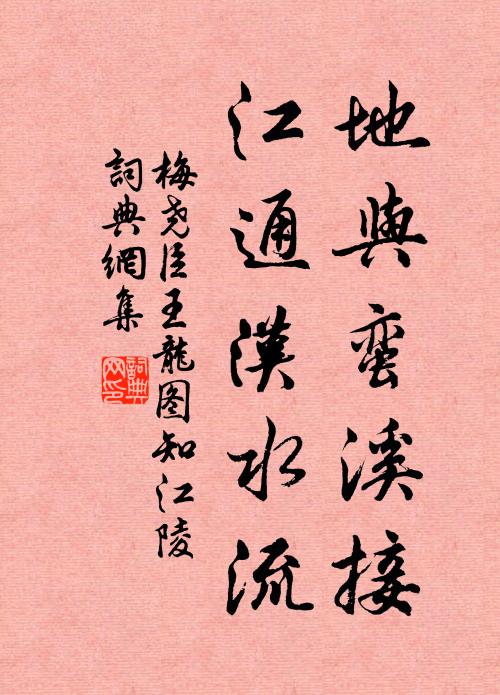 地與蛮溪接
江通漢水流
梅尧臣王龍图知江陵
詞典網集
詞典网印